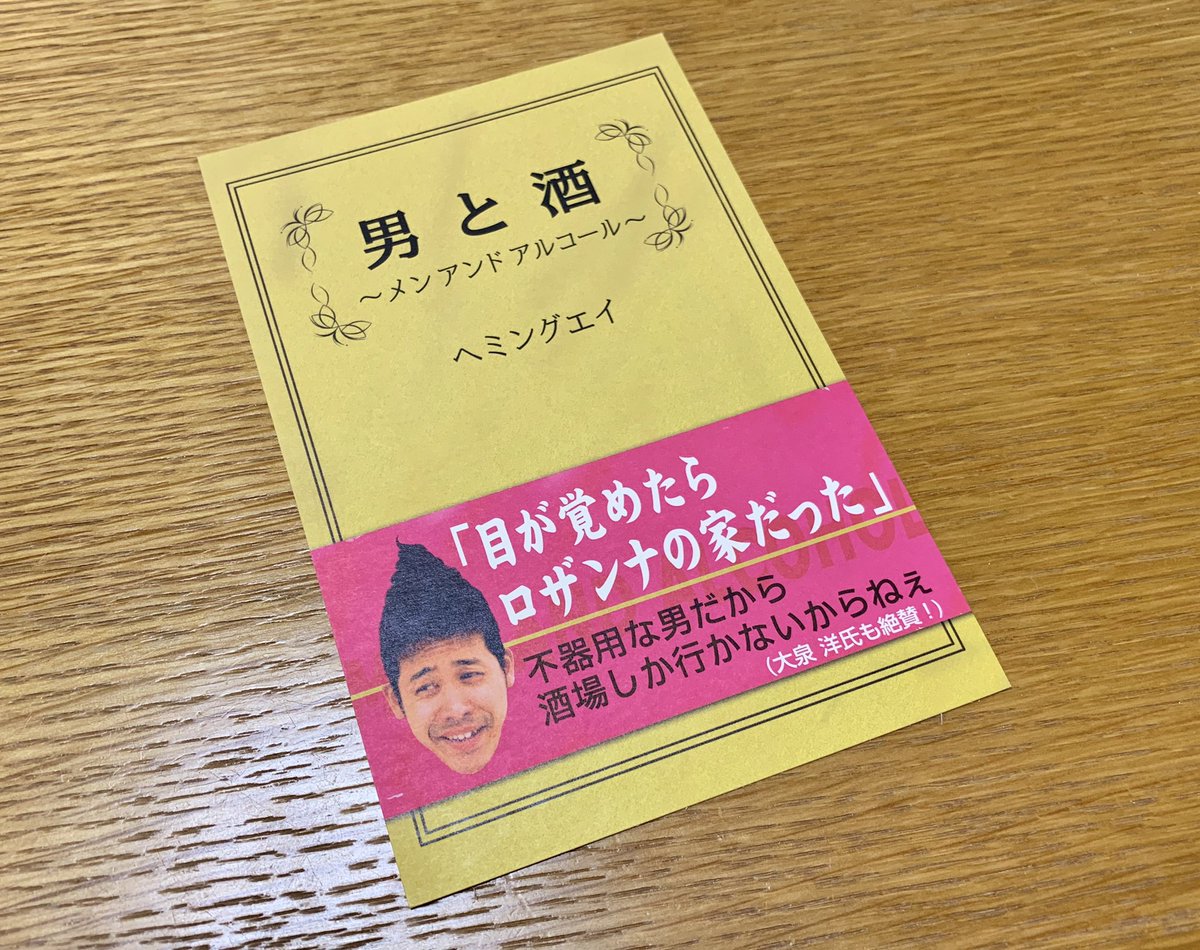 男と酒
～メン アンド アルコール～
ヘミングエイ
「目が覚めたら
ロザンナの家だった」
不器用な男だから
酒場しか行かないからねぇ
(大泉 洋氏も絶賛！)